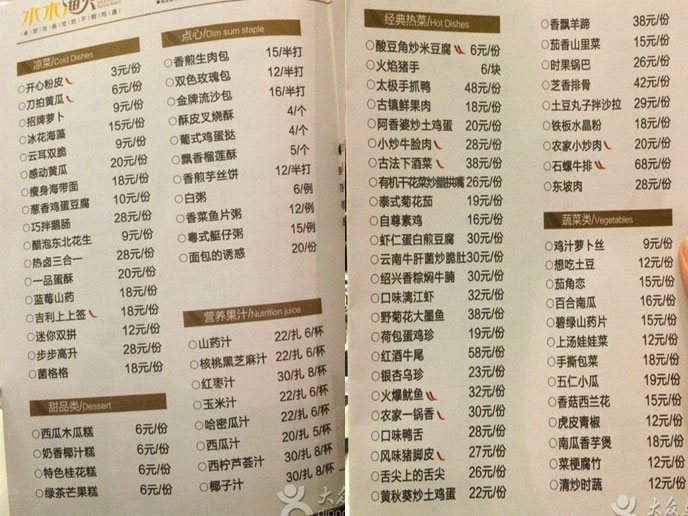 水水渔人
凉菜/Cold Dishes
○开心粉皮 3元/份
○刀拍黄瓜 6元/份
○招牌萝卜 9元/份
○冰花海藻 15元/份
○云耳双脆 9元/份
○感动黄瓜 20元/份
○瘦身海带面 18元/份
○葱香鸡蛋豆腐 10元/份
○巧拌鹅肠 28元/份
○醋泡东北花生 9元/份
○热卤三合一 28元/份
○一品蛋酥 20元/份
○蓝莓山药 18元/份
○吉利上上签 18元/份
○迷你双拼 12元/份
○步步高升 28元/份
○菌格格 18元/份
甜品类/Dessert
○西瓜木瓜糕 6元/份
○奶香椰汁糕 6元/份
○特色桂花糕 6元/份
○绿茶芒果糕 6元/份
点心/Dim sum staple
○香煎生肉包 15/半打
○双色玫瑰包 12/半打
○金牌流沙包 16/半打
○酥皮叉烧酥 4/个
○葡式鸡蛋挞 4/个
○飘香榴莲酥 5/个
○香煎芋丝饼 12/半打
○白粥 6/例
○香菜鱼片粥 12/例
○粤式艇仔粥 15/例
○面包的诱惑 20/份
营养果汁/Nutrition juice
○山药汁 22/扎 6/杯
○核桃黑芝麻汁 22/扎 6/杯
○红枣汁 30/扎 8/杯
○玉米汁 22/扎 6/杯
○哈密瓜汁 22/扎 6/杯
○西瓜汁 20/扎 5/杯
○西柠芦荟汁 30/扎 8/杯
○椰子汁 30/扎 8/杯
经典热菜/Hot Dishes
○酸豆角炒米豆腐 6元/份
○火焰猪手 6/块
○太极手抓鸭 48元/份
○古镇鲜果肉 18元/份
○阿香婆炒土鸡蛋 20元/份
○小炒牛脸肉 28元/份
○古法下酒菜 38元/份
○有机干花菜炒腊拱嘴 26元/份
○泰式菊花茄 19元/份
○自尊素鸡 16元/份
○虾仁蛋白煎豆腐 30元/份
○云南牛肝菌炒脆肚 30元/份
○绍兴香粽焖牛腩 30元/份
○口味满江虾 32元/份
○野菊花大墨鱼 38元/份
○荷包蛋鸡珍 19元/份
○红酒牛尾 58元/份
○银杏乌珍 23元/份
○火爆鱿鱼 32元/份
○农家一锅香 30元/份
○口味鸭舌 28元/份
○风味猪脚皮 27元/份
○舌尖上的舌尖 26元/份
○黄秋葵炒土鸡蛋 22元/份
○香飘羊蹄 38元/份
○茄香山里菜 15元/份
○时果锅巴 26元/份
○芝香排骨 42元/份
○土豆丸子拌沙拉 29元/份
○铁板水晶粉 18元/份
○农家小炒肉 20元/份
○石螺牛排 68元/份
○东坡肉 28元/份
蔬菜类/Vegetables
○鸡汁萝卜丝 9元/份
○想吃土豆 12元/份
○茄角恋 15元/份
○百合南瓜 16元/份
○碧绿山药片 15元/份
○上汤娃娃菜 12元/份
○手撕包菜 18元/份
○五仁小瓜 19元/份
○香菇西兰花 15元/份
○虎皮青椒 12元/份
○南瓜香芋煲 18元/份
○菜梗腐竹 12元/份
○清炒时蔬 12元/份